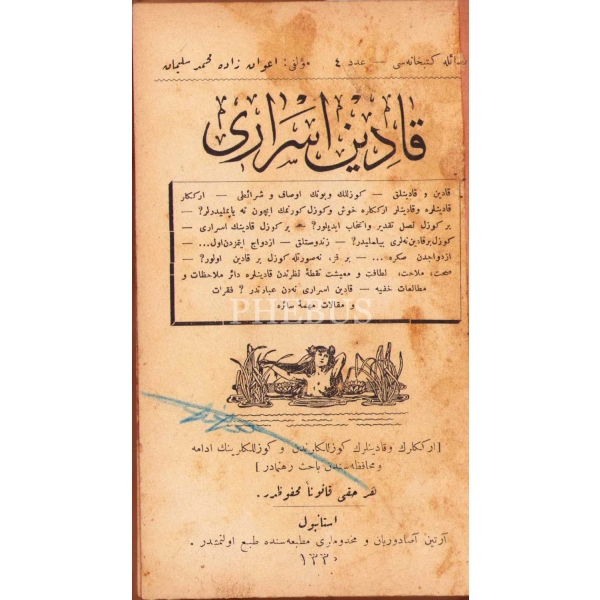 رسائله كتبخانه‌سی — عدد ٤ مؤلفی: اعوان زاده محمد سلیمان
قادین اسراری
قادین و قادینلق — كوزللك و بونك اوصاف و شرائطی — ارككلر
قادینلره وقادینلر ارككلره خوش وكوزل كورنمك ایچون نه یاپملیدرلر؟ —
بر كوزل نصل تقدیر وانتخاب ایدیلور؟ — بر كوزل قادینك اسراری —
كوزل برقادین نه‌لری بیلملیدر؟ — زندوستلق — ازدواج ایتمزدن‌اول... —
ازدواجدن صكره ... — بر قز، نه‌صورتله كوزل بر قادین اولور؟ —
صحت، ملاحت، لطافت و معیشت نقطهٔ نظرندن قادینلره دائر ملاحظات و
مطالعات خفیه — قادین اسراری نه‌دن عبارتدر ؟ فقرات
و مقالات مهمهٔ سائره
PHEBUS
[ارككلرك وقادینلرك كوزللكلرندن و كوزللكلرینك ادامه
ومحافظه‌سندن باحث رهنمادر]
هر حقی قانوناً محفوظدر.
استانبول
آرتین آصادوریان و مخدوملری مطبعه‌سنده طبع اولنمشدر .
١٣٣٠